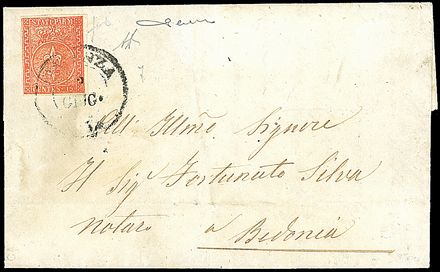 STATI PARM
CENTES. 15
GIUG.
All' Illmo Signore
Il Sigr Fortunato Silva
notaro a Bedonia